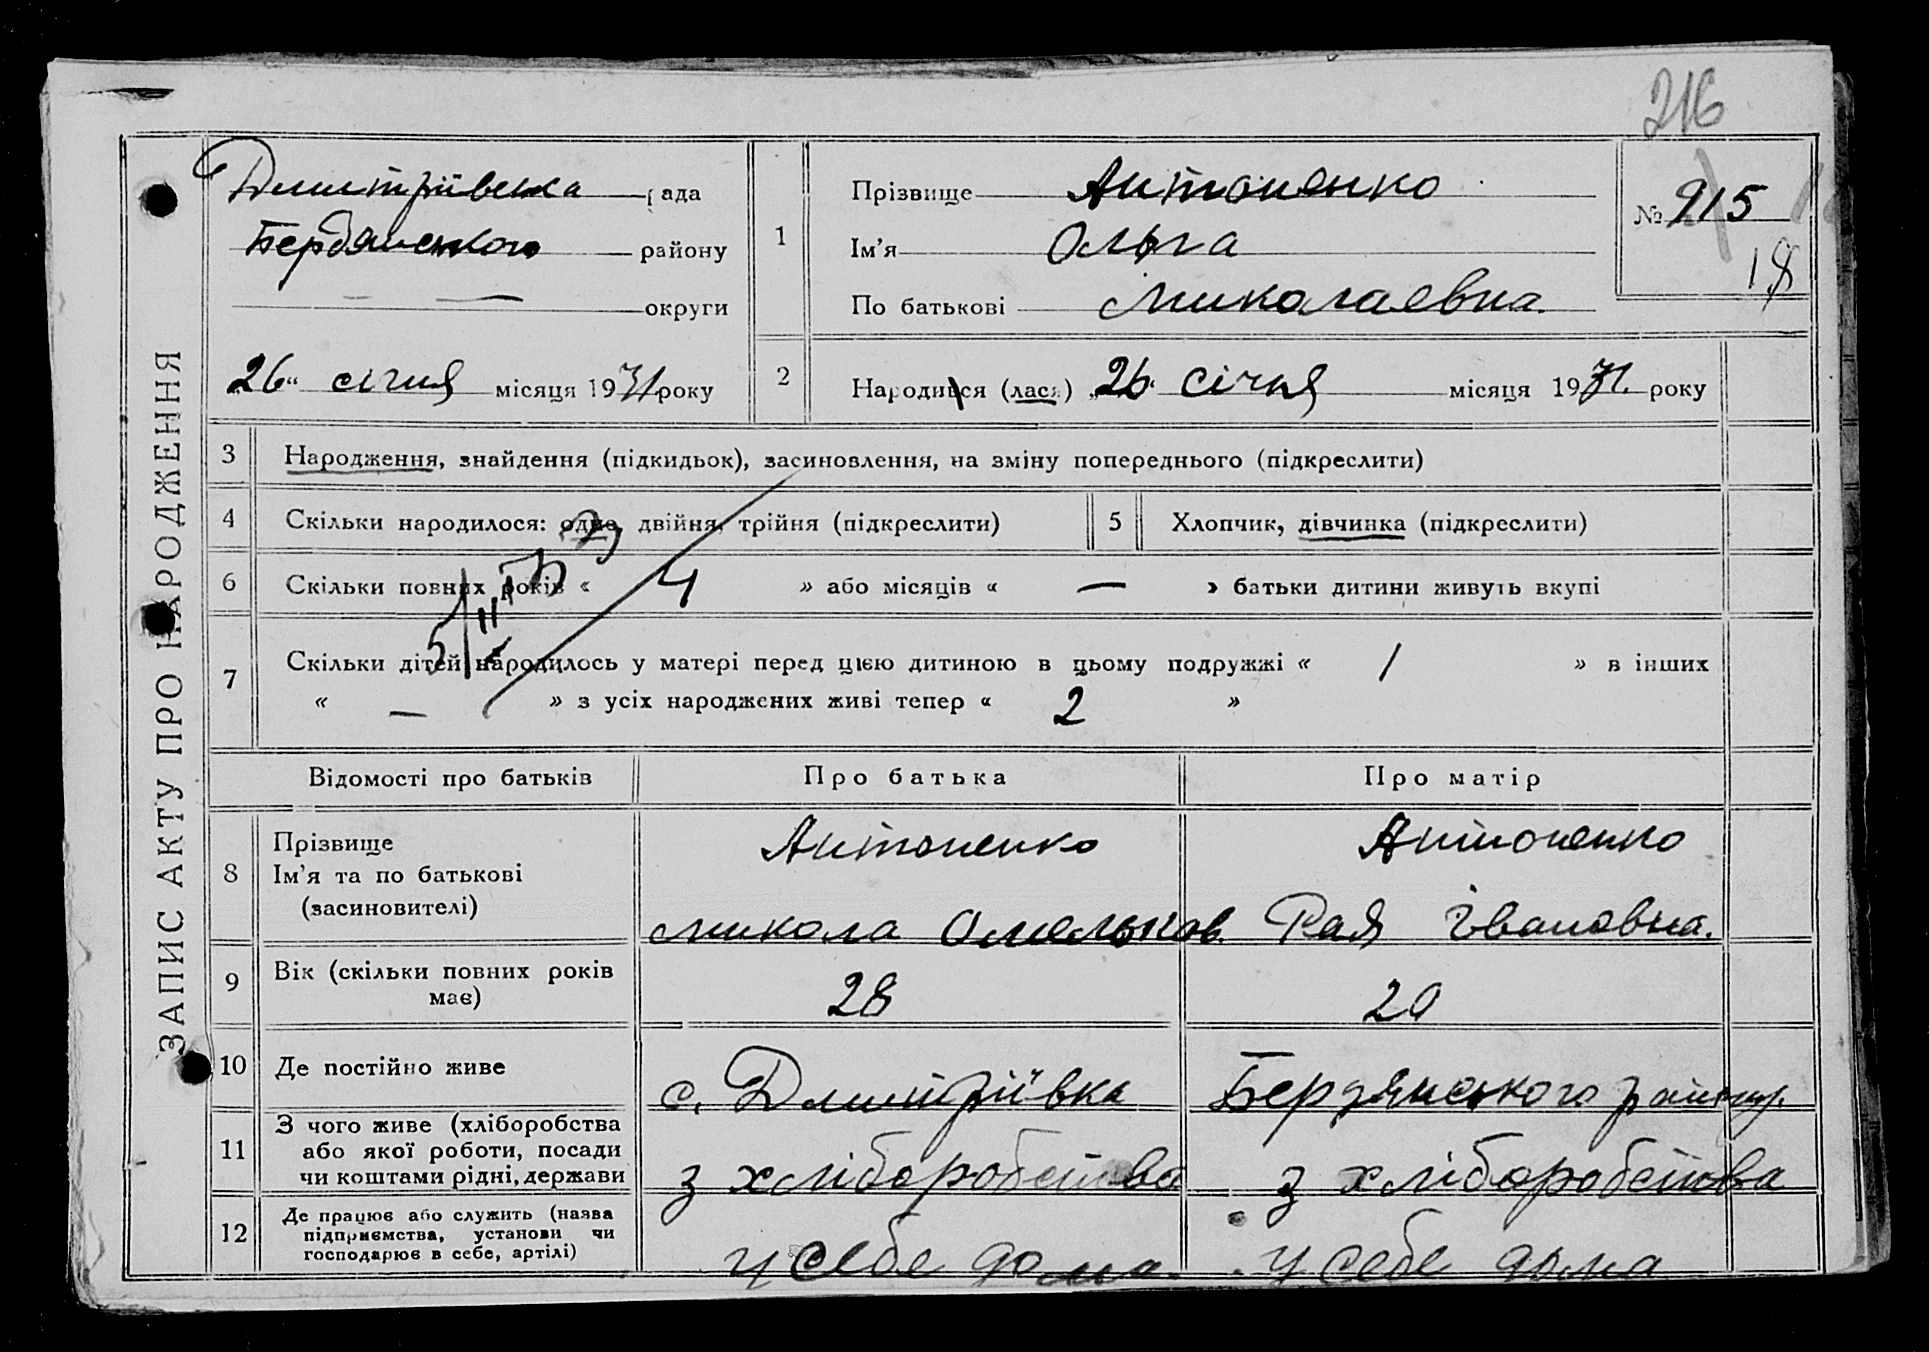 216
ЗАПИС АКТУ ПРО НАРОДЖЕННЯ
Дмитріївська рада
Бердянського району
— — округи
„26“ січня місяця 1931 року
1
Прізвище Антоненко
Ім'я Ольга
По батькові Миколаевна.
№ 915
18
2
Народився (лася) „26" січня місяця 1931. року
3 Народження, знайдення (підкидьок), засиновлення, на зміну попереднього (підкреслити)
4 Скільки народилося: одно, двійня, трійня (підкреслити)
5 Хлопчик, дівчинка (підкреслити)
6 Скільки повних років « 4 » або місяців « — » батьки дитини живуть вкупі
7 Скільки дітей народилось у матері перед цією дитиною в цьому подружжі « 1 » в інших
« — » з усіх народжених живі тепер « 2 »
Відомості про батьків Про батька Про матір
8 Прізвище
Ім'я та по батькові
(засиновителі)
Антоненко
Микола Омельков.
Антоненко
Рая Івановна.
9 Вік (скільки повних років
має)
28
20
10 Де постійно живе с. Дмитріївка Бердянського району.
11 З чого живе (хліборобства
або якої роботи, посади
чи коштами рідні, держави
з хліборобства
з хліборобства
12 Де працює або служить (назва
підприємства, установи чи
господарює в себе, артілі)
у себе дома.
у себе дома